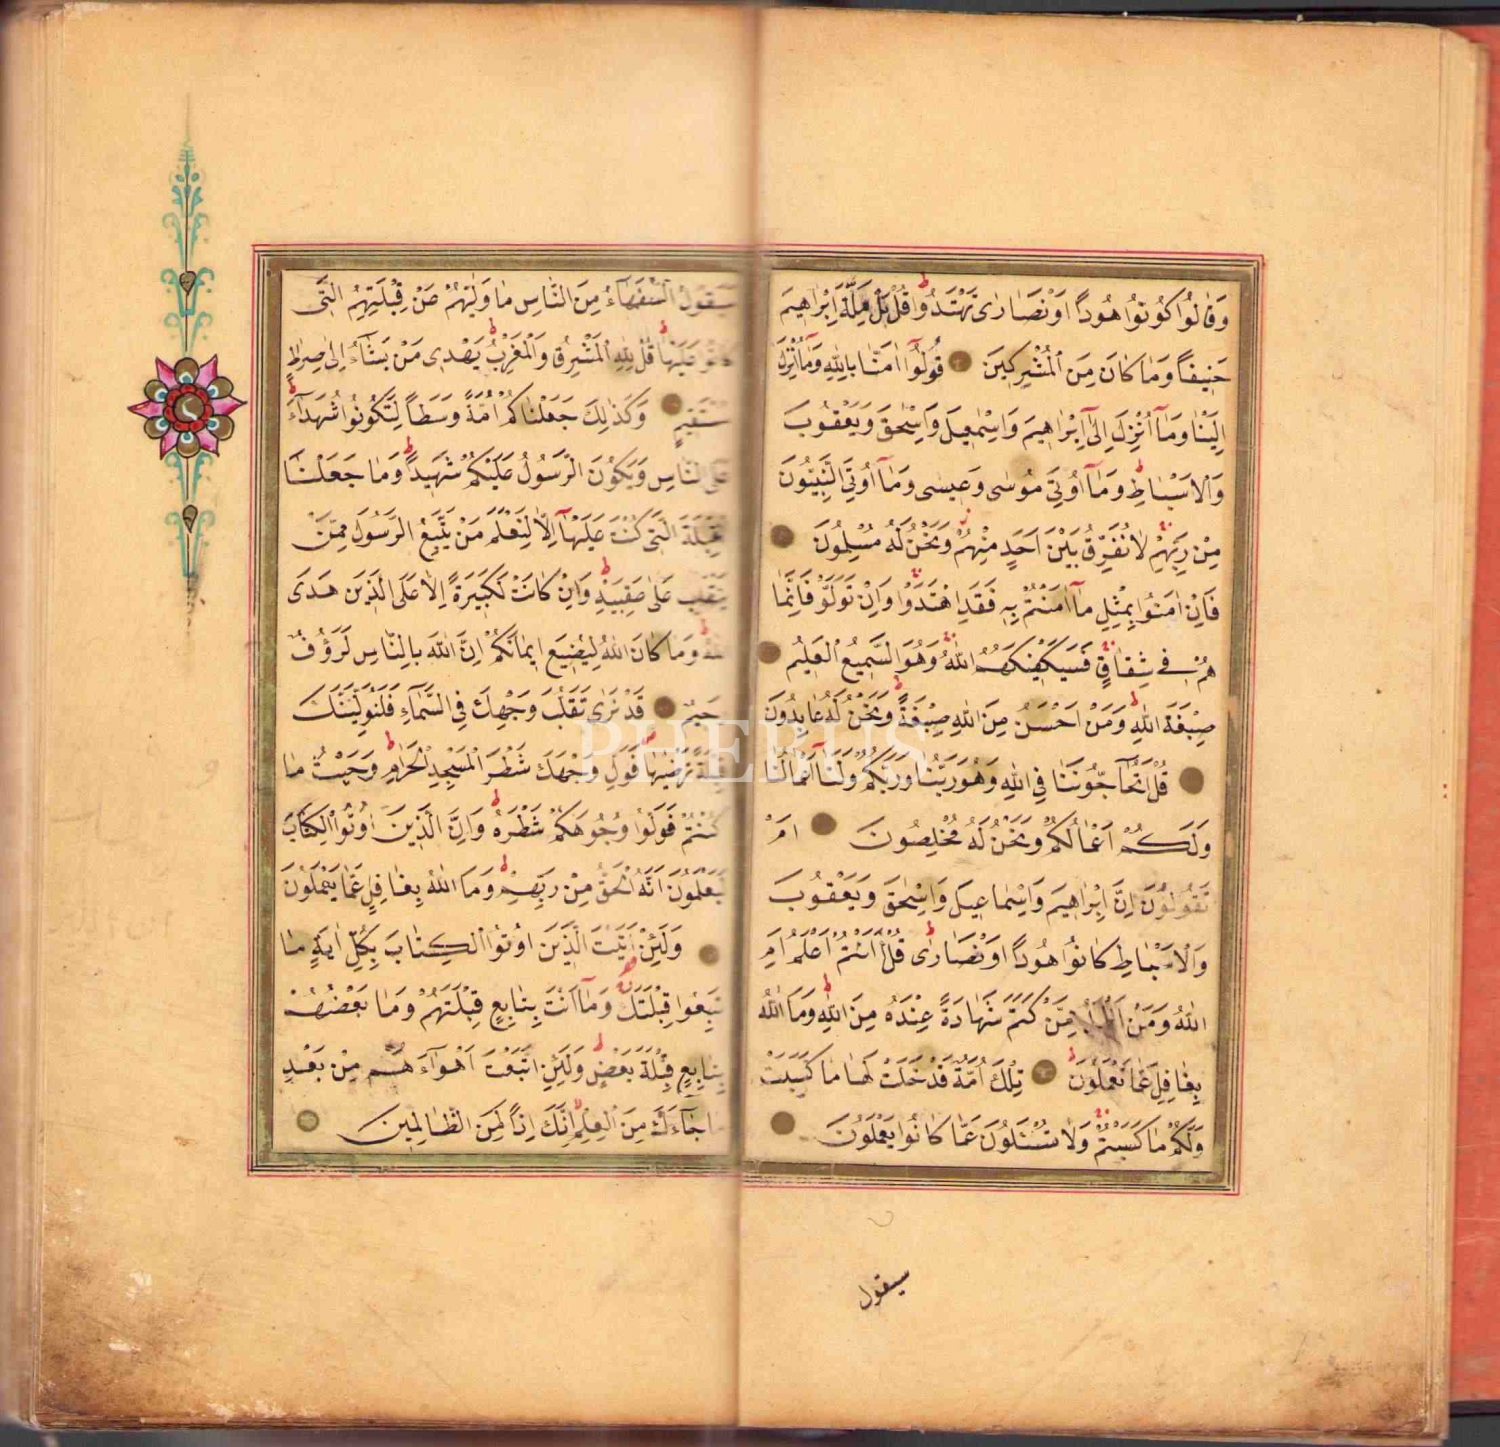 وَقَالُوا كُونُوا هُودًا اَوْ نَصَارٰى تَهْتَدُوا قُلْ بَلْ مِلَّةَ اِبْرٰاهِيمَ
حَنِيفًا وَمَا كَانَ مِنَ الْمُشْرِكِينَ قُولُوٓا اٰمَنَّا بِاللّٰهِ وَمَٓا اُنْزِلَ
اِلَيْنَا وَمَٓا اُنْزِلَ اِلٰٓى اِبْرٰاهِيمَ وَاِسْمٰعِيلَ وَاِسْحٰقَ وَيَعْقُوبَ
وَالْاَسْبَاطِ وَمَٓا اُوتِيَ مُوسٰى وَعِيسٰى وَمَٓا اُوتِيَ النَّبِيُّونَ
مِنْ رَبِّهِمْ لَا نُفَرِّقُ بَيْنَ اَحَدٍ مِنْهُمْ وَنَحْنُ لَهُ مُسْلِمُونَ
فَاِنْ اٰمَنُوا بِمِثْلِ مَٓا اٰمَنْتُمْ بِهِ فَقَدِ اهْتَدَوْا وَاِنْ تَوَلَّوْا فَاِنَّمَا
هُمْ فِي شِقَاقٍ فَسَيَكْفِيكَهُمُ اللّٰهُ وَهُوَ السَّمِيعُ الْعَلِيمُ
صِبْغَةَ اللّٰهِ وَمَنْ اَحْسَنُ مِنَ اللّٰهِ صِبْغَةً وَنَحْنُ لَهُ عَابِدُونَ
قُلْ اَتُحَٓاجُّونَنَا فِي اللّٰهِ وَهُوَ رَبُّنَا وَرَبُّكُمْ وَلَنَٓا اَعْمَالُنَا
وَلَكُمْ اَعْمَالُكُمْ وَنَحْنُ لَهُ مُخْلِصُونَ اَمْ
تَقُولُونَ اِنَّ اِبْرٰاهِيمَ وَاِسْمَاعِيلَ وَاِسْحٰقَ وَيَعْقُوبَ
وَالْاَسْبَاطِ كَانُوا هُودًا اَوْ نَصَارٰى قُلْ ءَاَنْتُمْ اَعْلَمُ اَمِ
اللّٰهُ وَمَنْ اَظْلَمُ مِمَّنْ كَتَمَ شَهَادَةً عِنْدَهُ مِنَ اللّٰهِ وَمَا اللّٰهُ
بِغَافِلٍ عَمَّا تَعْمَلُونَ تِلْكَ اُمَّةٌ قَدْ خَلَتْ لَهَا مَا كَسَبَتْ
وَلَكُمْ مَا كَسَبْتُمْ وَلَا تُسْـَٔلُونَ عَمَّا كَانُوا يَعْمَلُونَ
سيقول
سَيَقُولُ السُّفَهَٓاءُ مِنَ النَّاسِ مَا وَلّٰيهُمْ عَنْ قِبْلَتِهِمُ الَّتِي
كَانُوا عَلَيْهَا قُلْ لِلّٰهِ الْمَشْرِقُ وَالْمَغْرِبُ يَهْدِي مَنْ يَشَٓاءُ اِلٰى صِرَاطٍ
مُسْتَقِيمٍ وَكَذٰلِكَ جَعَلْنَاكُمْ اُمَّةً وَسَطًا لِتَكُونُوا شُهَدَٓاءَ
عَلَى النَّاسِ وَيَكُونَ الرَّسُولُ عَلَيْكُمْ شَهِيدًا وَمَا جَعَلْنَا
الْقِبْلَةَ الَّتِي كُنْتَ عَلَيْهَٓا اِلَّا لِنَعْلَمَ مَنْ يَتَّبِعُ الرَّسُولَ مِمَّنْ
يَنْقَلِبُ عَلٰى عَقِبَيْهِ وَاِنْ كَانَتْ لَكَبِيرَةً اِلَّا عَلَى الَّذِينَ هَدَى
اللّٰهُ وَمَا كَانَ اللّٰهُ لِيُضِيعَ اِيمَانَكُمْ اِنَّ اللّٰهَ بِالنَّاسِ لَرَؤُفٌ
رَحِيمٌ قَدْ نَرٰى تَقَلُّبَ وَجْهِكَ فِي السَّمَٓاءِ فَلَنُوَلِّيَنَّكَ
قِبْلَةً تَرْضٰيهَا فَوَلِّ وَجْهَكَ شَطْرَ الْمَسْجِدِ الْحَرَامِ وَحَيْثُ مَا
كُنْتُمْ فَوَلُّوا وُجُوهَكُمْ شَطْرَهُ وَاِنَّ الَّذِينَ اُوتُوا الْكِتَابَ
لَيَعْلَمُونَ اَنَّهُ الْحَقُّ مِنْ رَبِّهِمْ وَمَا اللّٰهُ بِغَافِلٍ عَمَّا يَعْمَلُونَ
وَلَئِنْ اَتَيْتَ الَّذِينَ اُوتُوا الْكِتَابَ بِكُلِّ اٰيَةٍ مَا
تَبِعُوا قِبْلَتَكَ وَمَٓا اَنْتَ بِتَابِعٍ قِبْلَتَهُمْ وَمَا بَعْضُهُمْ
بِتَابِعٍ قِبْلَةَ بَعْضٍ وَلَئِنِ اتَّبَعْتَ اَهْوَٓاءَهُمْ مِنْ بَعْدِ
مَا جَٓاءَكَ مِنَ الْعِلْمِ اِنَّكَ اِذًا لَمِنَ الظَّالِمِينَ
PHEBUS